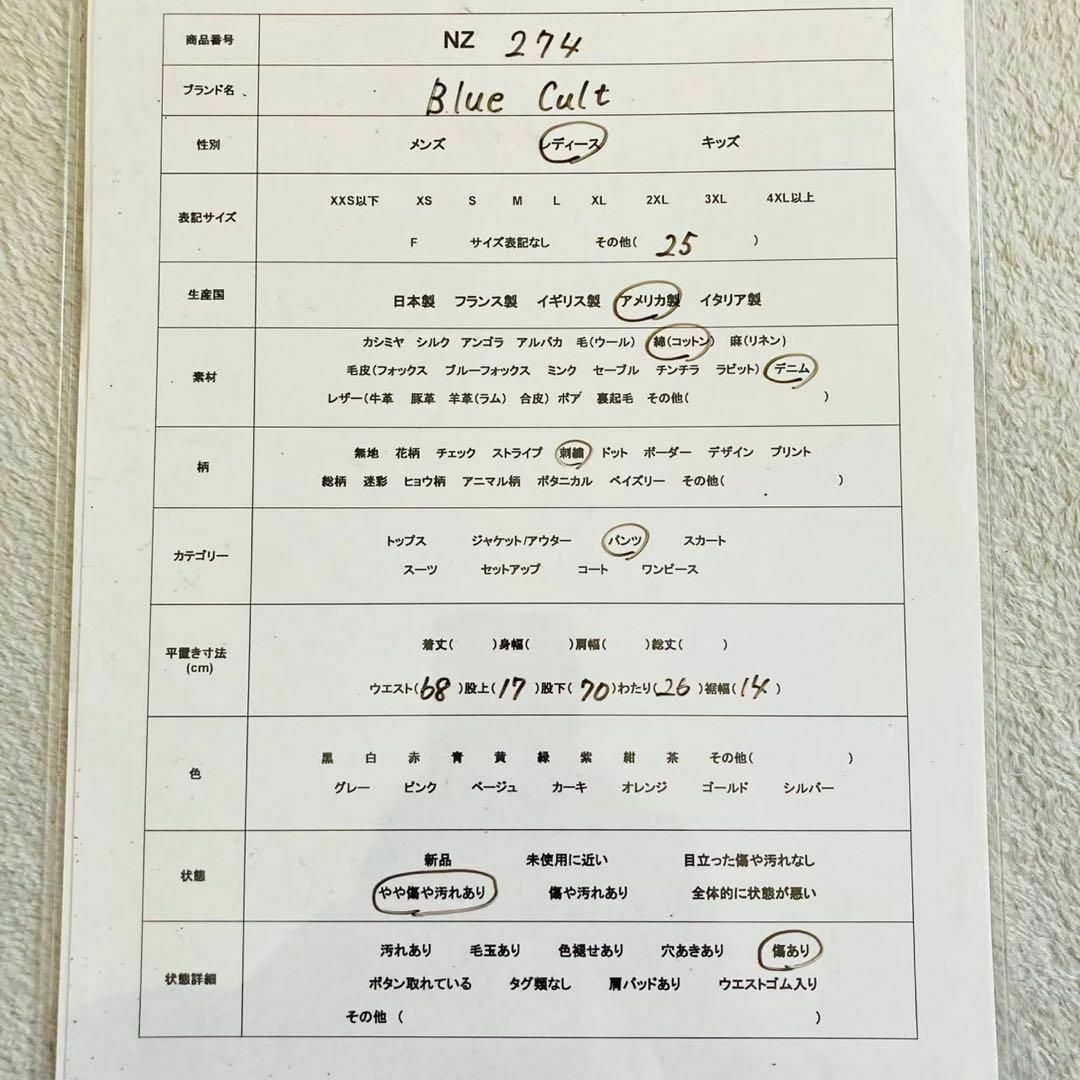 商品番号 NZ 274
ブランド名 Blue Cult
性別 メンズ レディース キッズ
表記サイズ
XXS以下 XS S M L XL 2XL 3XL 4XL以上
F サイズ表記なし その他( 25 )
生産国 日本製 フランス製 イギリス製 アメリカ製 イタリア製
素材
カシミヤ シルク アンゴラ アルパカ 毛(ウール) 綿(コットン) 麻(リネン)
毛皮(フォックス ブルーフォックス ミンク セーブル チンチラ ラビット) デニム
レザー(牛革 豚革 羊革(ラム) 合皮) ボア 裏起毛 その他( )
柄
無地 花柄 チェック ストライプ 刺繍 ドット ボーダー デザイン プリント
総柄 迷彩 ヒョウ柄 アニマル柄 ボタニカル ペイズリー その他( )
カテゴリー
トップス ジャケット/アウター パンツ スカート
スーツ セットアップ コート ワンピース
平置き寸法
(cm)
着丈( )身幅( )肩幅( )総丈( )
ウエスト(68)股上(17)股下(70)わたり(26)裾幅(14)
色
黒 白 赤 青 黄 緑 紫 紺 茶 その他( )
グレー ピンク ベージュ カーキ オレンジ ゴールド シルバー
状態
新品 未使用に近い 目立った傷や汚れなし
やや傷や汚れあり 傷や汚れあり 全体的に状態が悪い
状態詳細
汚れあり 毛玉あり 色褪せあり 穴あきあり 傷あり
ボタン取れている タグ類なし 肩パッドあり ウエストゴム入り
その他 ( )